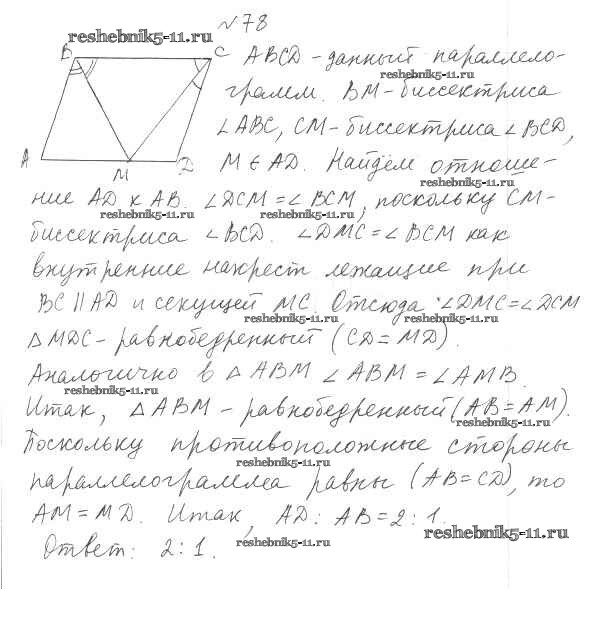 №78
reshebnik5-11.ru
B C ABCD – данный параллело-
reshebnik5-11.ru
грамм. BM – биссектриса
∠ABC, CM – биссектриса ∠BCD,
A M D M ∈ AD. Найдем отноше-
reshebnik5-11.ru
ние AD к AB. ∠DCM = ∠BCM, поскольку CM –
reshebnik5-11.ru reshebnik5-11.ru
биссектриса ∠BCD. ∠DMC = ∠BCM как
внутренние накрест лежащие при
BC || AD и секущей MC. Отсюда ∠DMC = ∠DCM
reshebnik5-11.ru reshebnik5-11.ru
△MDC – равнобедренный (CD = MD).
Аналогично в △ABM ∠ABM = ∠AMB.
reshebnik5-11.ru
Итак, △ABM – равнобедренный (AB = AM).
reshebnik5-11.ru
Поскольку противоположные стороны
reshebnik5-11.ru
параллелограмма равны (AB = CD), то
AM = MD. Итак, AD : AB = 2 : 1.
reshebnik5-11.ru
Ответ: 2 : 1.
reshebnik5-11.ru